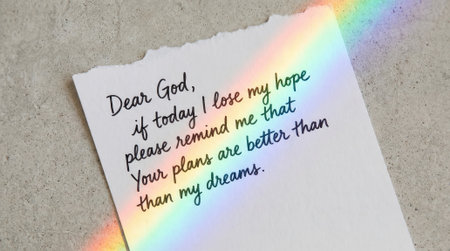 Dear God,
if today I lose my hope
please remind me that
Your plans are better than
than my dreams.